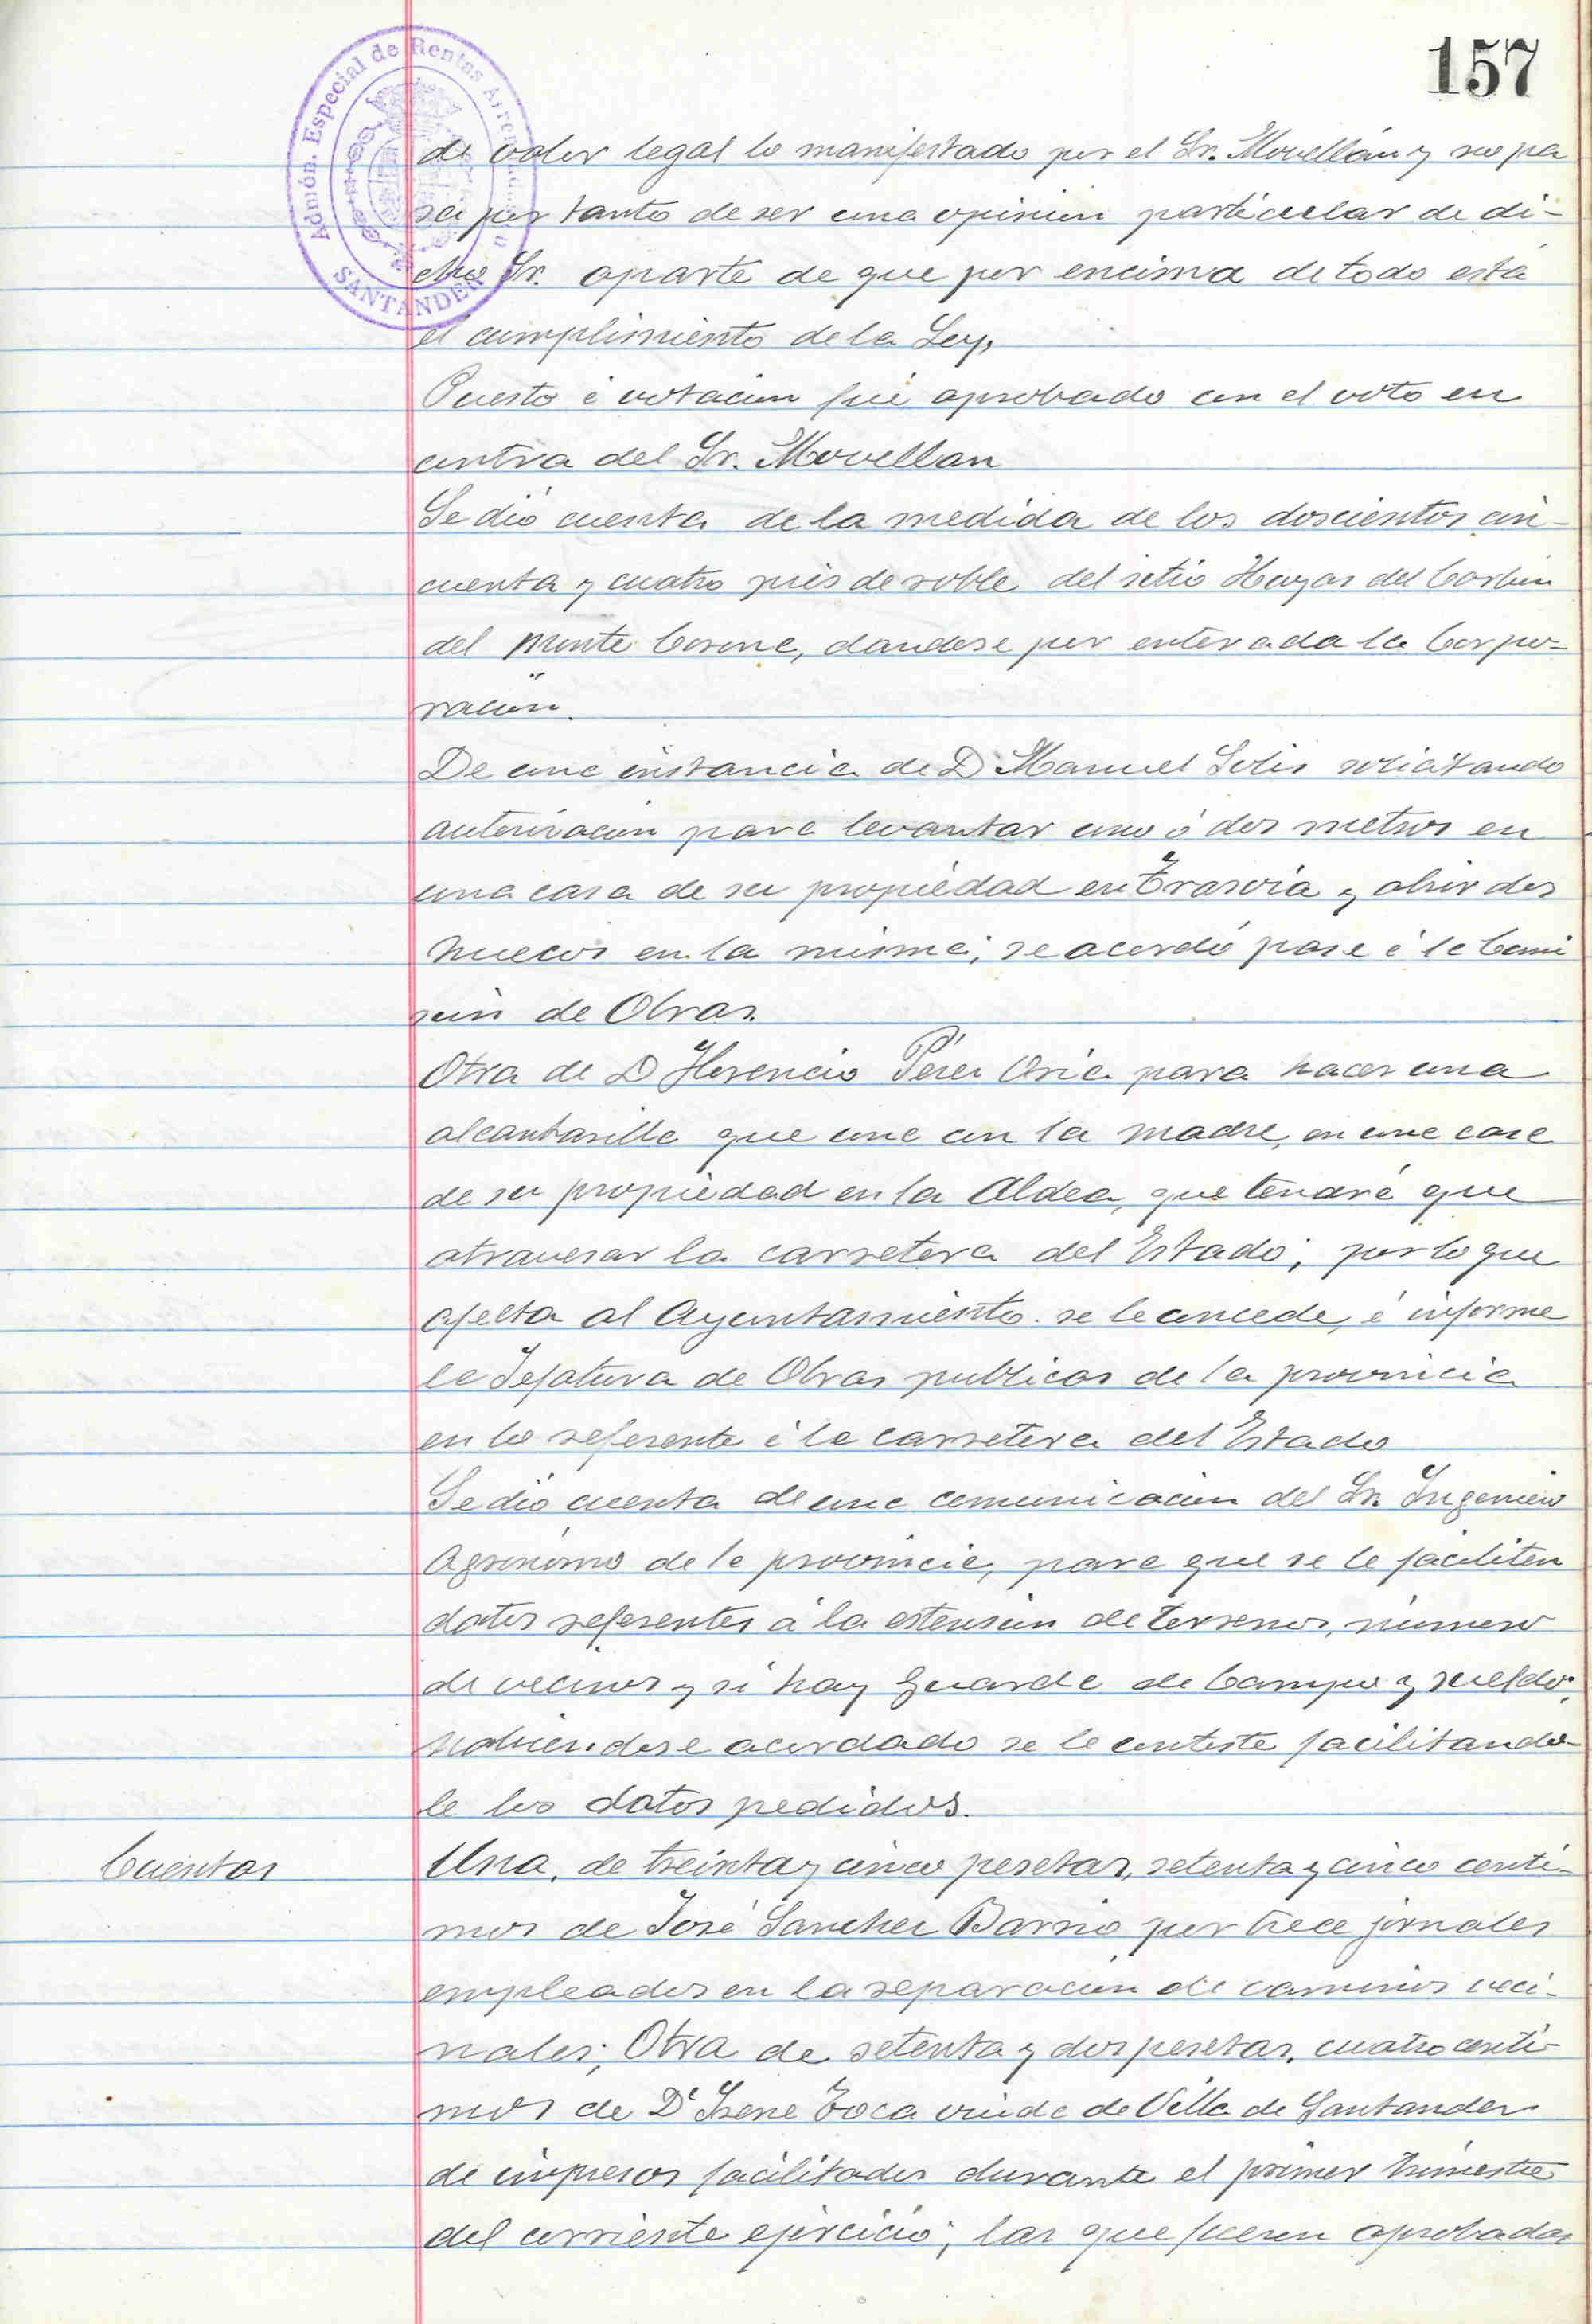 157
Admón. Especial de Rentas Arrendadas
SANTANDER
de valor legal lo manifestado por el Sr. Movellán y no pa
sa por tanto de ser una opinión particular de di-
cho Sr. aparte de que por encima de todo está
el cumplimiento de la Ley,
Puesto á votación fué aprobado con el voto en
contra del Sr. Movellan
Se dió cuenta de la medida de los doscientos cin-
cuenta y cuatro piés de roble del sitio Hayas del
del monte Corona, dandose por enterada la Corpo-
ración.
De una instancia de D Manuel Solis solicitando
autorización para levantar uno ó dos metros en
una casa de su propiedad en Trasvia y abrir dos
huecos en la misma; se acordó pase á la Comi
sión de Obras.
Otra de D Florencio Pérez Oria para hacer una
alcantarilla que une con la madre, en una casa
de su propiedad en la Aldea, que tendrá que
atravesar la carretera del Estado; por lo que
afecta al Ayuntamiento. se le concede, é informe
la Jefatura de Obras publicas de la provincia
en lo referente á la carretera del Estado
Se dió cuenta de una comunicación del Sr. Ingeniero
Agronomo de la provincia, para que se le faciliten
datos referentes á la estensión de terrenos, número
de vecinos y si hay Guarda de Campo y sueldo;
habiendose acordado se le conteste facilitando-
le los datos pedidos.
Cuentas
Una, de treinta y cinco pesetas, setenta y cinco centi-
mos de José Sanchez Barrio por trece jornales
empleados en la reparación de caminos veci-
nales; Otra de setenta y dos pesetas, cuatro centi-
mos de Dª Irene Toca viuda de Villa de Santander
de impresos facilitados durante el primer trimestre
del corriente ejercicio; las que fueron aprobadas